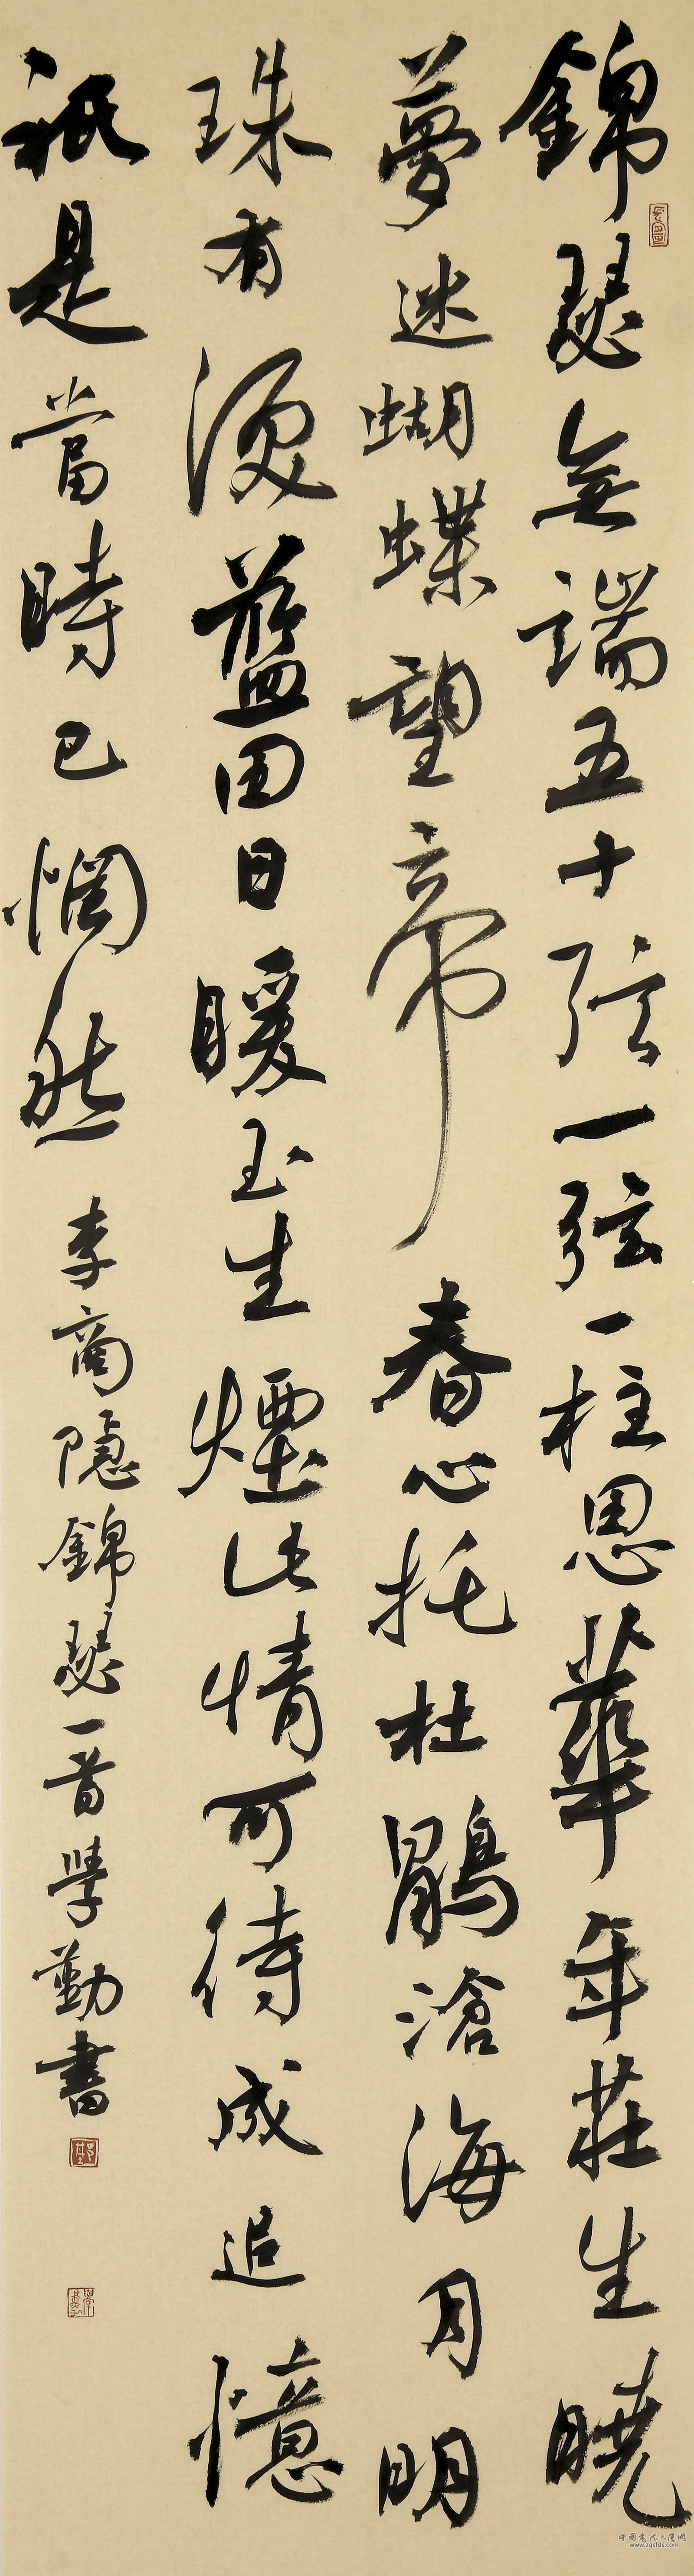 錦瑟無端五十弦一弦一柱思華年莊生曉
夢迷蝴蝶望帝春心托杜鵑滄海月明
珠有淚藍田日暖玉生煙此情可待成追憶
祇是當時已惘然 李商隱錦瑟一首學勤書
www.zgsfds.com